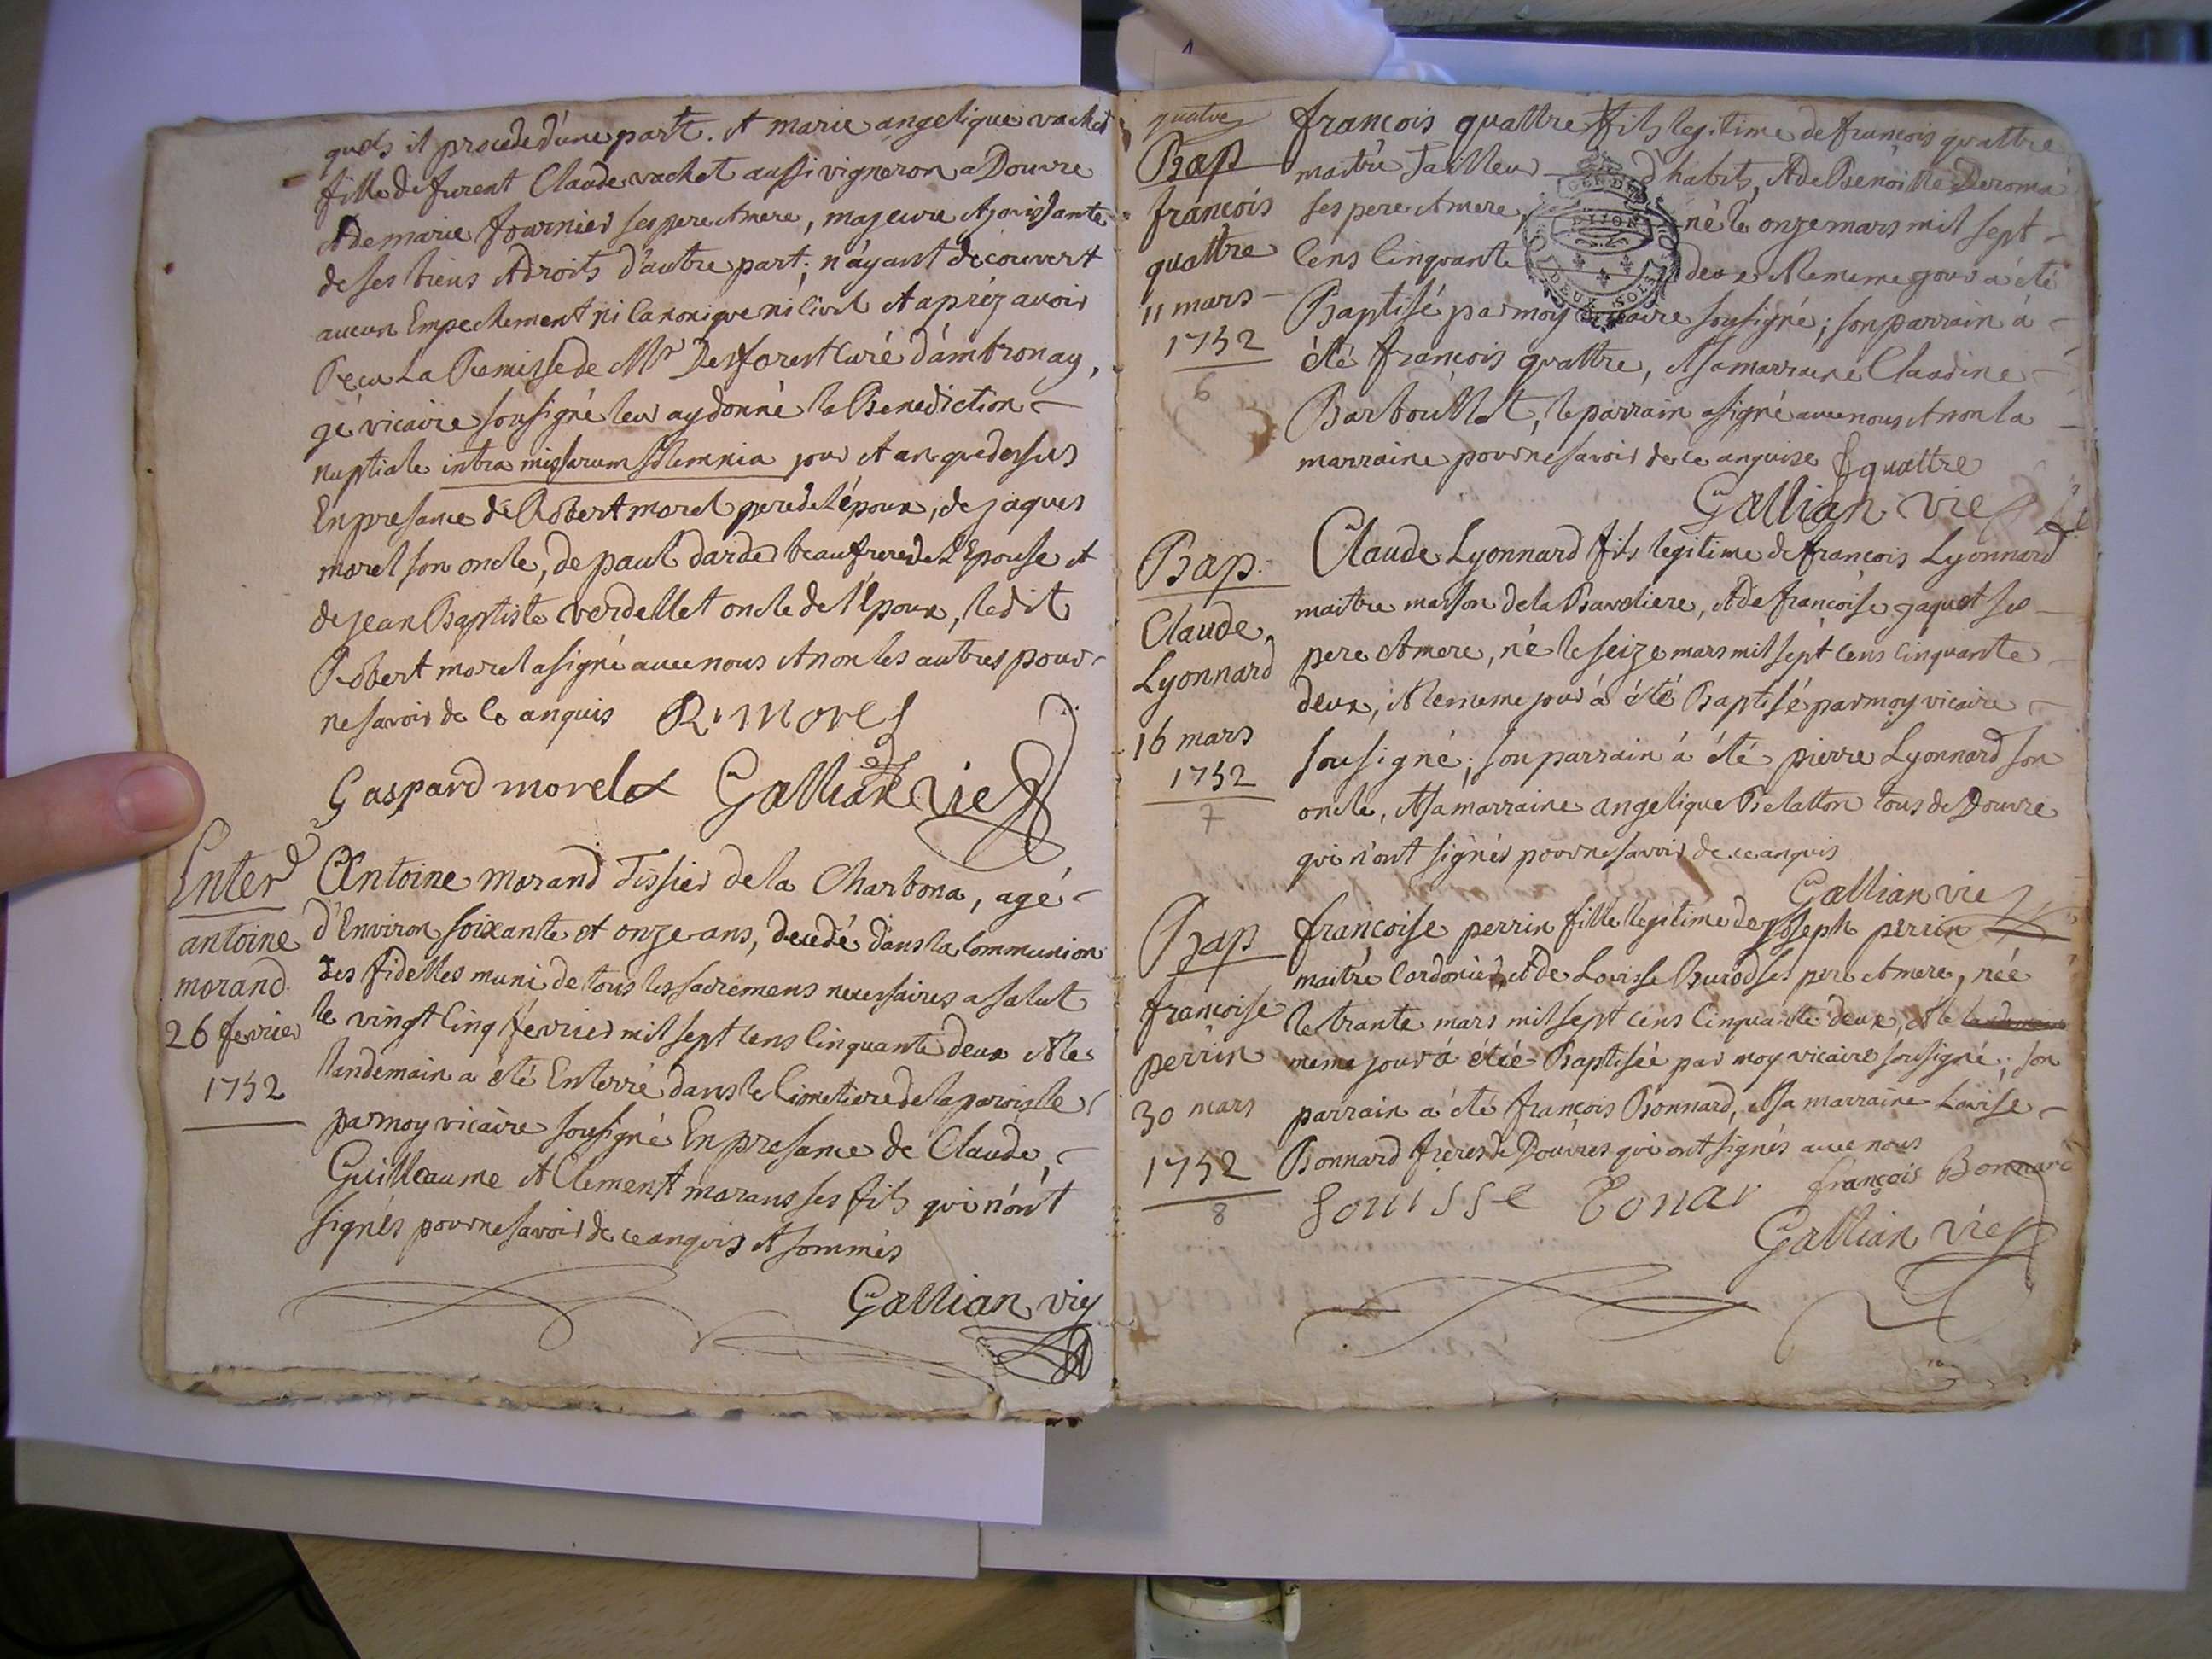 quels il procede d'une part. et marie angelique vachet
fille de furent Claude vachet aussi vigneron a Douvre
et de marie fournier ses pere et mere, majeure et jouissante
de ses biens et droits d'autre part; n'ayant découvert
aucun Empechement ni Canonique ni Civil et apréz avoir
Reçu La Remisse de Mr Desforest Curé d'ambronay,
gé vicaire sousigné leur ay donné la Benediction
nuptiale intra missarum solemnia jour et an que dessus
En presance de Robert morel pere de l'époux, de jaques
morel son oncle, de paul darde beaufrere de L'Epouse et
de jean Baptiste verdellet oncle de l'époux, ledit
Robert morel a signé avec nous et non les autres pour
ne savoir de ce anquis R. Morel
Gaspard morel Gallian vic
Enter
antoine
morand
26 fevrier
1752
Antoine morand Tissier de la Charbona, agé
d'Environ soixante et onze ans, decedé dans la Communion
des fidelles muni de tous les sacremens necessaires a salut
le vingt cinq fevrier mil sept cens cinquante deux et le
landemain a été Enterré dans le Cimetiere de la paroisse
par moy vicaire sousigné En presance de Claude,
Guilleaume et Clement morans ses fils qui n'ont
signés pour ne savoir de ce anquis et sommés
Gallian vic
quatre
Bap
francois
quattre
11 mars
1752
6
francois quattre fils legitime de francois quattre
maitre Tailleur d'habits, et de Benoitte Deroma
ses pere et mere, né le onze mars mil sept
Cens Cinquante deux et le meme jour a été
Baptisé par moy vicaire sousigné; son parrain à
été francois quattre, et sa marraine Claudine
Barbouillet, le parrain a signé avec nous et non la
marraine pour ne savoir de ce anquise f quattre
Gallian vic
GEN DE DIJON
DEUX SOLS
Bap.
Claude
Lyonnard
16 mars
1752
7
Claude Lyonnard fils legitime de francois Lyonnard
maitre masson de la Baveliere, et de francoise jaquet ses
pere et mere, né le seize mars mil sept cens cinquante
deux, et le meme jour à été Baptisé par moy vicaire
sousigné; son parrain à été pierre Lyonnard son
oncle, et sa marraine angelique Belatton tous de Douvre
qui n'ont signés pour ne savoir de ce anquis
Gallian vic
Bap
francoise
perrin
30 mars
1752
8
francoise perrin fille legitime de joseph perrin
maitre Cordonier, et de Lovisse Burod ses pere et mere, née
le trante mars mil sept cens Cinquante deux, et le landemain
meme jour à étée Baptisée par moy vicaire sousigné; son
parrain a été francois Bonnard, et sa marraine Lovise
Bonnard freres de Douvres qui ont signés avec nous
francois Bonnard
Louisse Bonar
Gallian vic